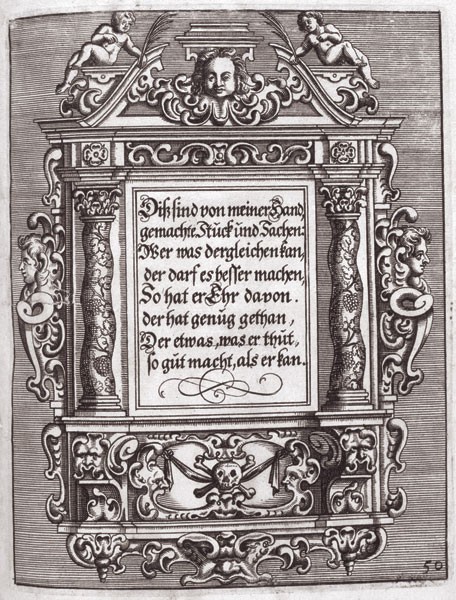 Diß sind von meiner Hand,
gemachte Stück und Sachen:
Wer was dergleichen kan,
der darf es besser machen,
So hat er Ehr davon.
der hat genug gethan,
Der etwas, was er thut,
so gut macht, als er kan.
50